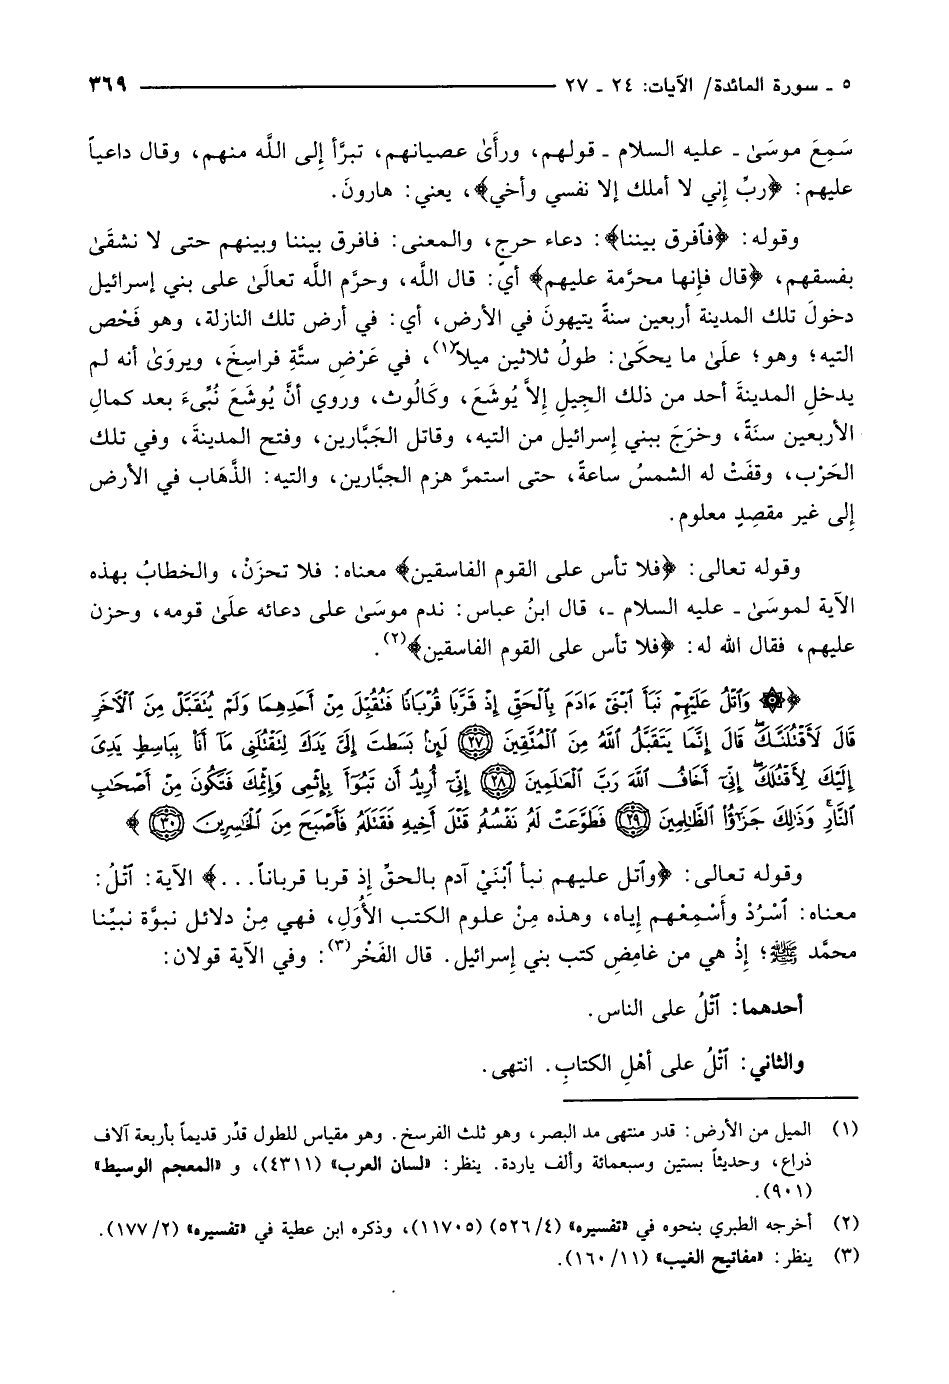 ٥ ـ سورة المائدة/ الآيات: ٢٤ ـ ٢٧ ٣٦٩
سَمِعَ موسَىٰ ـ عليه السلام ـ قولهم، ورَأَىٰ عصيانهم، تبرَّأ إِلى اللَّه منهم، وقال داعياً
عليهم: ﴿ربِّ إِني لا أملك إلا نفسي وأخي﴾، يعني: هارونَ.
وقوله: ﴿فٱفرق بيننا﴾: دعاء حرجٍ، والمعنى: فافرق بيننا وبينهم حتى لا نشقَىٰ
بفسقهم، ﴿قال فإِنها محرَّمة عليهم﴾ أيْ: قال اللَّه، وحرَّم اللَّه تعالَىٰ على بني إِسرائيل
دخولَ تلك المدينة أربعين سنةً يتيهونَ في الأرض، أي: في أرض تلك النازلة، وهو فَحْص
التيه؛ وهو؛ علَىٰ ما يحكَىٰ: طولُ ثلاثين ميلاً(١)، في عَرْضِ ستَّةِ فراسِخَ، ويروَىٰ أنه لم
يدخلِ المدينةَ أحد من ذلك الجِيلِ إِلاَّ يُوشَعَ، وكَالُوث، وروي أنَّ يُوشَعَ نُبِّىءَ بعد كمالِ
الأربعين سنَةً، وخرَجَ ببني إِسرائيل من التيه، وقاتل الجَبَّارين، وفتح المدينةَ، وفي تلك
الحَرْب، وقفَتْ له الشمسُ ساعةً، حتى استمرَّ هزم الجبَّارين، والتيه: الذَّهَاب في الأرض
إِلى غير مقصِدٍ معلوم.
وقوله تعالى: ﴿فلا تأس على القوم الفاسقين﴾ معناه: فلا تحزَنْ، والخطابُ بهذه
الآية لموسَىٰ ـ عليه السلام ـ، قال ابنُ عباس: ندم موسَىٰ على دعائه علَىٰ قومه، وحزن
عليهم، فقال اللَّه له: ﴿فلا تأس على القوم الفاسقين﴾(٢).
﴿۞ وَٱتْلُ عَلَيْهِمْ نَبَأَ ٱبْنَىْ ءَادَمَ بِٱلْحَقِّ إِذْ قَرَّبَا قُرْبَانًا فَتُقُبِّلَ مِنْ أَحَدِهِمَا وَلَمْ يُتَقَبَّلْ مِنَ ٱلْآخَرِ
قَالَ لَأَقْتُلَنَّكَ ۖ قَالَ إِنَّمَا يَتَقَبَّلُ ٱللَّهُ مِنَ ٱلْمُتَّقِينَ (٢٧) لَئِنۢ بَسَطتَ إِلَىَّ يَدَكَ لِتَقْتُلَنِى مَآ أَنَا۠ بِبَاسِطٍ يَدِىَ
إِلَيْكَ لِأَقْتُلَكَ ۖ إِنِّىٓ أَخَافُ ٱللَّهَ رَبَّ ٱلْعَٰلَمِينَ (٢٨) إِنِّىٓ أُرِيدُ أَن تَبُوٓأَ بِإِثْمِى وَإِثْمِكَ فَتَكُونَ مِنْ أَصْحَٰبِ
ٱلنَّارِ ۚ وَذَٰلِكَ جَزَٰٓؤُا۟ ٱلظَّٰلِمِينَ (٢٩) فَطَوَّعَتْ لَهُۥ نَفْسُهُۥ قَتْلَ أَخِيهِ فَقَتَلَهُۥ فَأَصْبَحَ مِنَ ٱلْخَٰسِرِينَ (٣٠) ﴾
وقوله تعالى: ﴿وٱتل عليهم نبأ ٱبْنَيْ آدم بالحقِّ إِذ قربا قرباناً...﴾ الآية: ٱتْلُ:
معناه: ٱسْرُدْ وأَسْمِعْهم إِياه، وهذه مِنْ علوم الكتب الأُوَلِ، فهي مِنْ دلائل نبوَّة نبيِّنا
محمَّد ﷺ؛ إِذْ هي من غامِضِ كتب بني إِسرائيل. قال الفَخْر(٣): وفي الآية قولان:
أحدهما: ٱتْلُ على الناس.
والثاني: ٱتْلُ على أهْلِ الكتابِ. انتهى.
(١) الميل من الأرض: قدر منتهى مد البصر، وهو ثلث الفرسخ. وهو مقياس للطول قدِّر قديماً بأربعة آلاف
ذراع، وحديثاً بستين وسبعمائة وألف ياردة. ينظر: «لسان العرب» (٤٣١١)، و «المعجم الوسيط»
(٩٠١).
(٢) أخرجه الطبري بنحوه في «تفسيره» (٤/ ٥٢٦) (١١٧٠٥)، وذكره ابن عطية في «تفسيره» (٢/ ١٧٧).
(٣) ينظر: «مفاتيح الغيب» (١١/ ١٦٠).